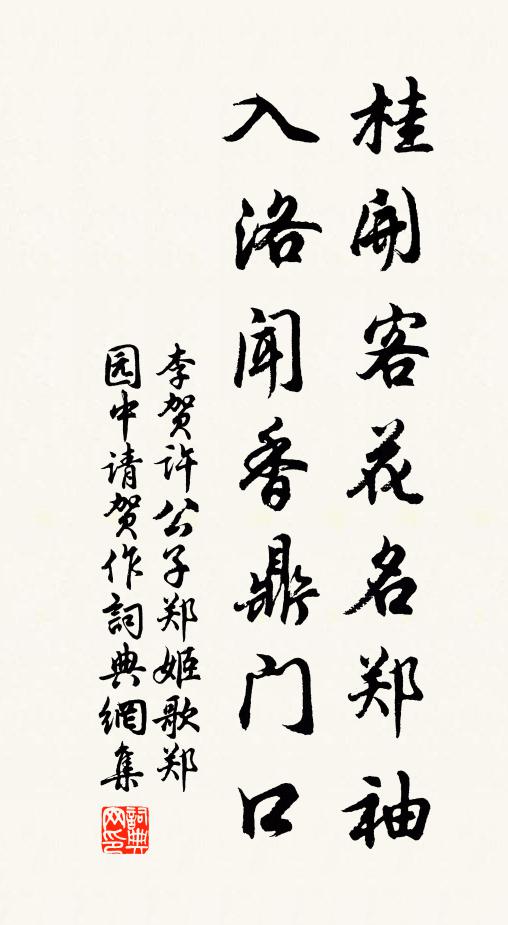 桂開客花名郑袖
入洛闻香鼎门口
李贺許公子郑姬歌郑
园中请贺作詞典網集
詞典网印